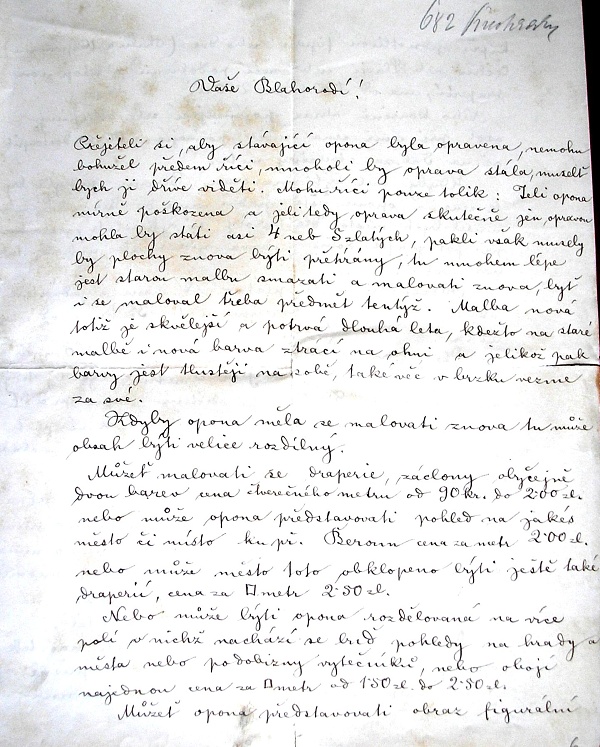 682
Vaše Blahorodí!
Přejíteli si, aby stávající opona byla opravena, nemohu
bohužel předem říci, mnoholi by oprava stála, museltě
bych ji dříve viděti. Mohu říci pouze tolik: Jeli opona
mírně poškozena a jeli tedy oprava skutečně jen opravou
mohla by státi asi 4 neb 5 zlatých, pakli však musely
by plochy znova býti přetřány, tu mnohem lépe
jest starou malbu smazati a malovati znova, byť
i se maloval třeba předmět tentýž. Malba nová
totiž je skvělejší a potrvá dlouhá leta, kdežto na staré
malbě i nová barva ztrácí na ohni a jelikož pak
barvy jest tlustěji na sobě, také věc v brzku vezme
za své.
Kdyby opona měla se malovati znova tu může
obsah býti velice rozdílný.
Můžeť malovati se draperie, záclony obyčejně
dvou barev cena čtverečného metru od 90 kr. do 2·00 zl.
nebo může opona představovati pohled na jakés
město či místo ku př. Beroun cena za metr 2·00 zl.
nebo může město toto obklopeno býti ještě také
draperií, cena za □metr 2·50 zl.
Nebo může býti opona rozdělovaná na více
polí v nichž nachází se buď pohledy na hrady a
města nebo podobizny výtečníků, nebo obojí
najednou cena za □metr od 1·50 zl. do 2·50 zl.
Můžeť opona představovati obraz figurální